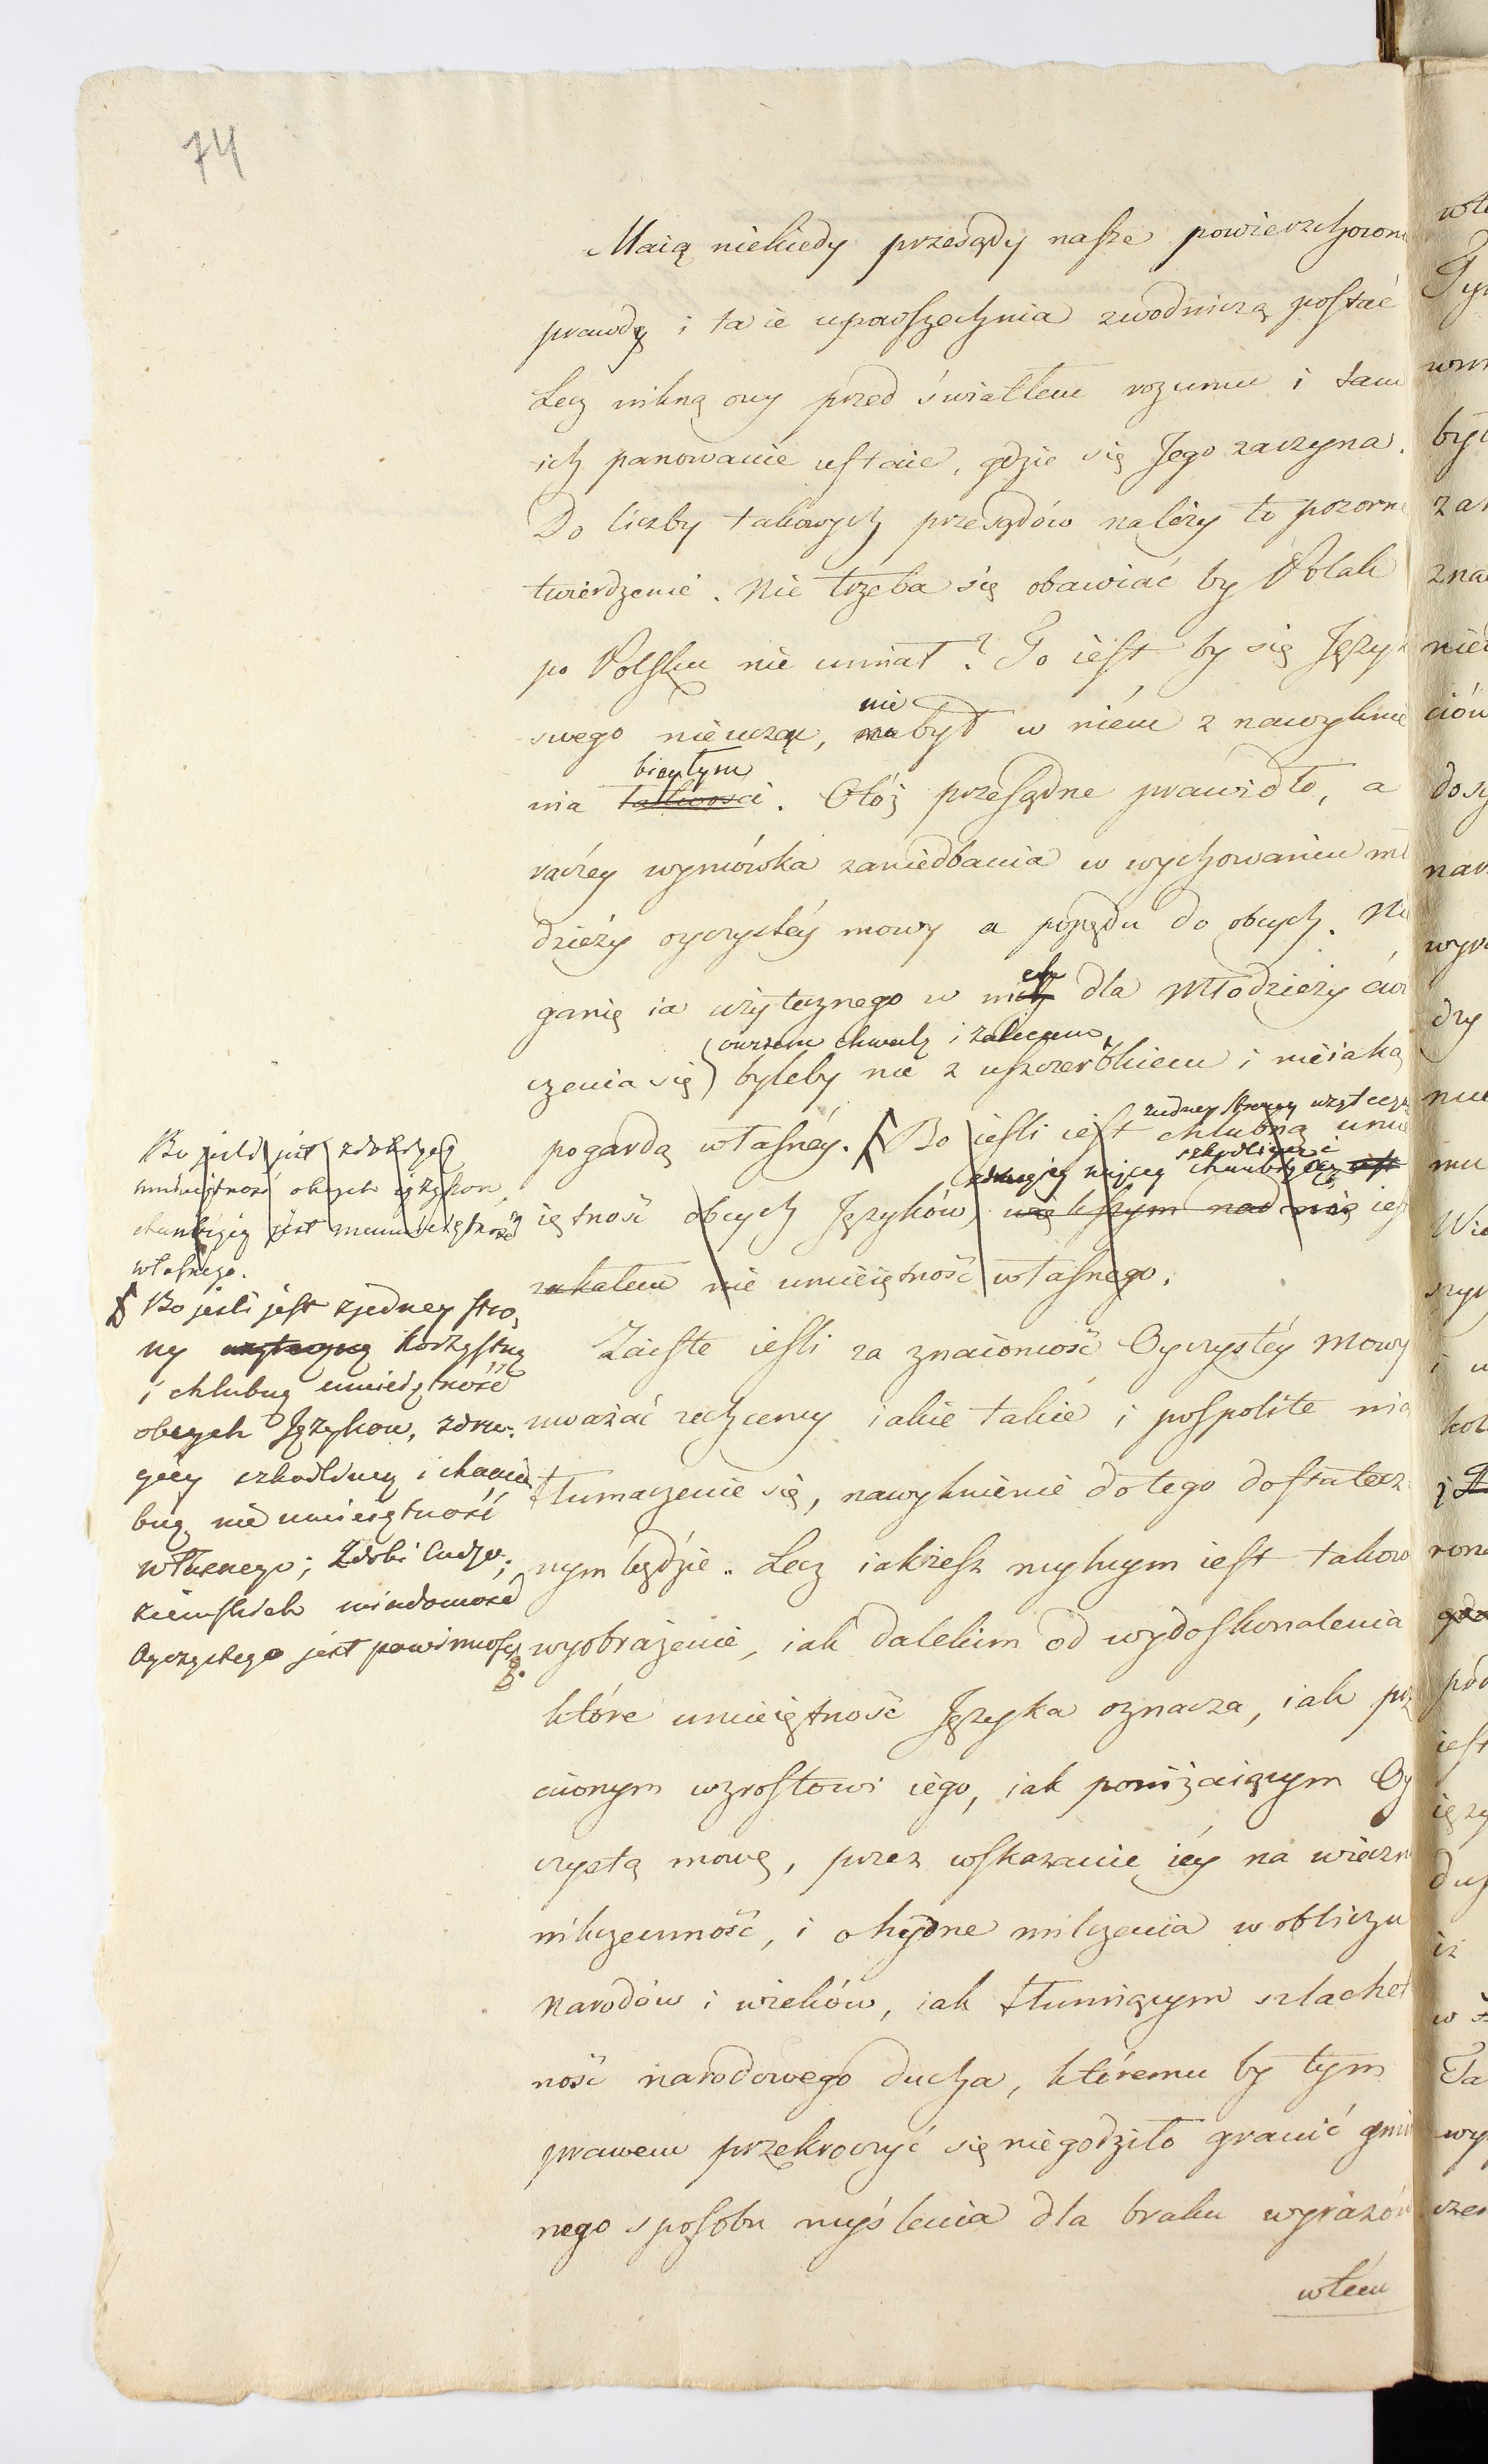 74
Maią niekiedy przesądy nasze powierzchown
prawdy i ta ie upowszechnia zwodniczą postać
Lecz nikną ony przed światłem rozumu i tam
ich panowanie ustaie, gdzie się Jego zaczyna.
Do liczby takowych przesądów należy to pozorn
twierdzenie. Nie trzeba się obawiać by Polak
po Polsku nie umiał? To iest by się Język
nie
swego nieucząc, nabył w niém z nawyknie
biegłym
nia łatwości. Otóż przesądne prawidło, a
raczéy wymówka zaniedbania w wychowaniu mł
dzieży oyczystéy mowy a popędu do obcych. Ni
ganię ia użytecznego w nich dla Młodzieży ćwi
owszem chwalę i zalecam,
czenia się byleby nie z uszczerbkiem i nieiaką
z iedney strony użyteczn
pogardą własnéy. Bo ieśli iest chlubną umie
szkodliwą i
z drugiey
iętność obcych Języków, większym nad nią iest
zakałem nie umieiętność własnego.
Zaiste ieśli za znaiomość Oyczystéy Mowy
uważać zechcemy iakie takie i pospolite nią
tłumaczenie się, nawyknienie dotego dostatecz
nym będzie. Lecz iakżesz mylnym iest takow
wyobrażenie, iak dalekim od wydoskonalenia
które umieiętność Języka oznacza, iak prz
ciwnym wzrostowi iego, iak poniżaiącym Oy
czystą mowę, przez wskazanie iéy na wieczn
nikczemność, i ohydne milczenia w obliczu
Narodów i wieków, iak tłumiącym szlachet
ność narodowego ducha, któremu by tym
prawem przekroczyć się niegodziło granić gmin
nego sposobu myślenia dla braku wyrazów
w tém
Bo jeśli jest zdobiącą
umiejętność obcych języków,
hańbiącą jest nieumiejętność
własnego.
Bo jeśli jest z jedney stro,
ny użyteczną korzystną
i chlubną umiejętność
obcych Języków, z dru-
giéy szkodliwą i hań
bną nie umiejętność
własnego; Zdobi cudzo,
ziemskich wiadomość
Oyczystego jest powinnością.